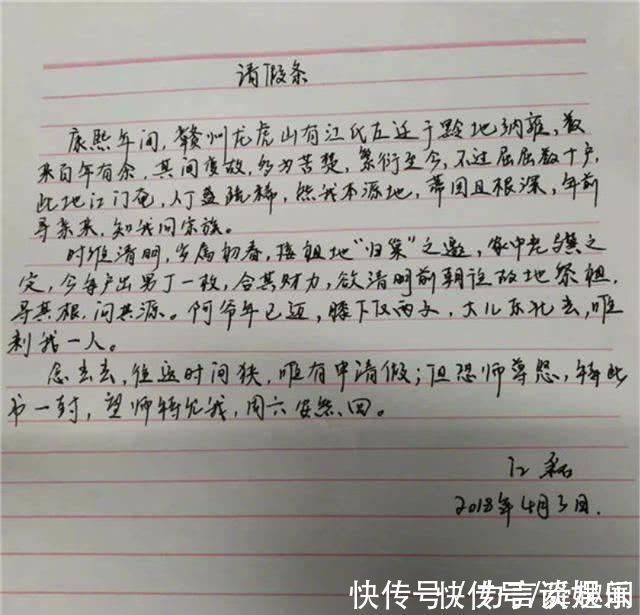 请假条
康熙年间，赣州龙虎山有江氏左迁于黔地纳雍，数
来百年有余，其间变故，多为苦楚，繁衍至今，不过屈屈数十户，
此地江门奄，人丁益疏稀，然我本源地，蒂固且根深，年前
寻亲来，知我同宗族。
时维清明，岁属初春，接祖地“归巢”之邀，家中老与其之
定，今每户出男丁一枚，合其财力，欲清明前朝往故地祭祖，
寻其根，问其源。阿爷年已迈，膝下仅两子，大儿东北去，唯
剩我一人。
念去去，往返时间狭，唯有申请假；但恐师尊怒，特此
书一封，望师特允我，周六安然回。
江磊
2018年4月3日.
快传号/